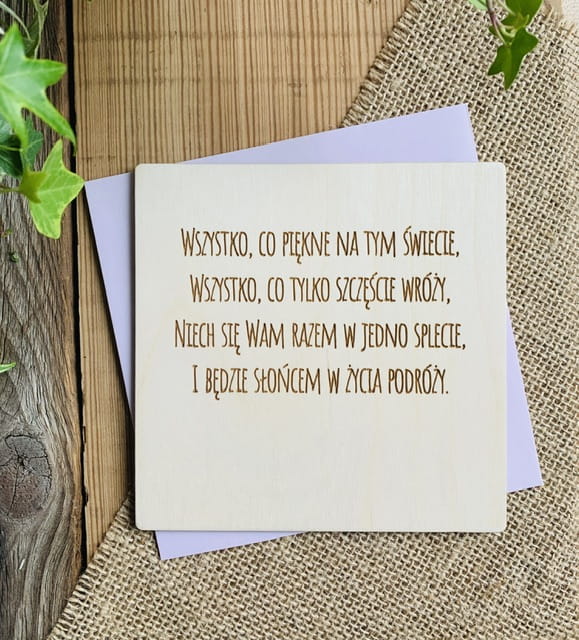 Wszystko, co piękne na tym świecie,
Wszystko, co tylko szczęście wróży,
Niech się Wam razem w jedno splecie,
I będzie słońcem w życia podróży.